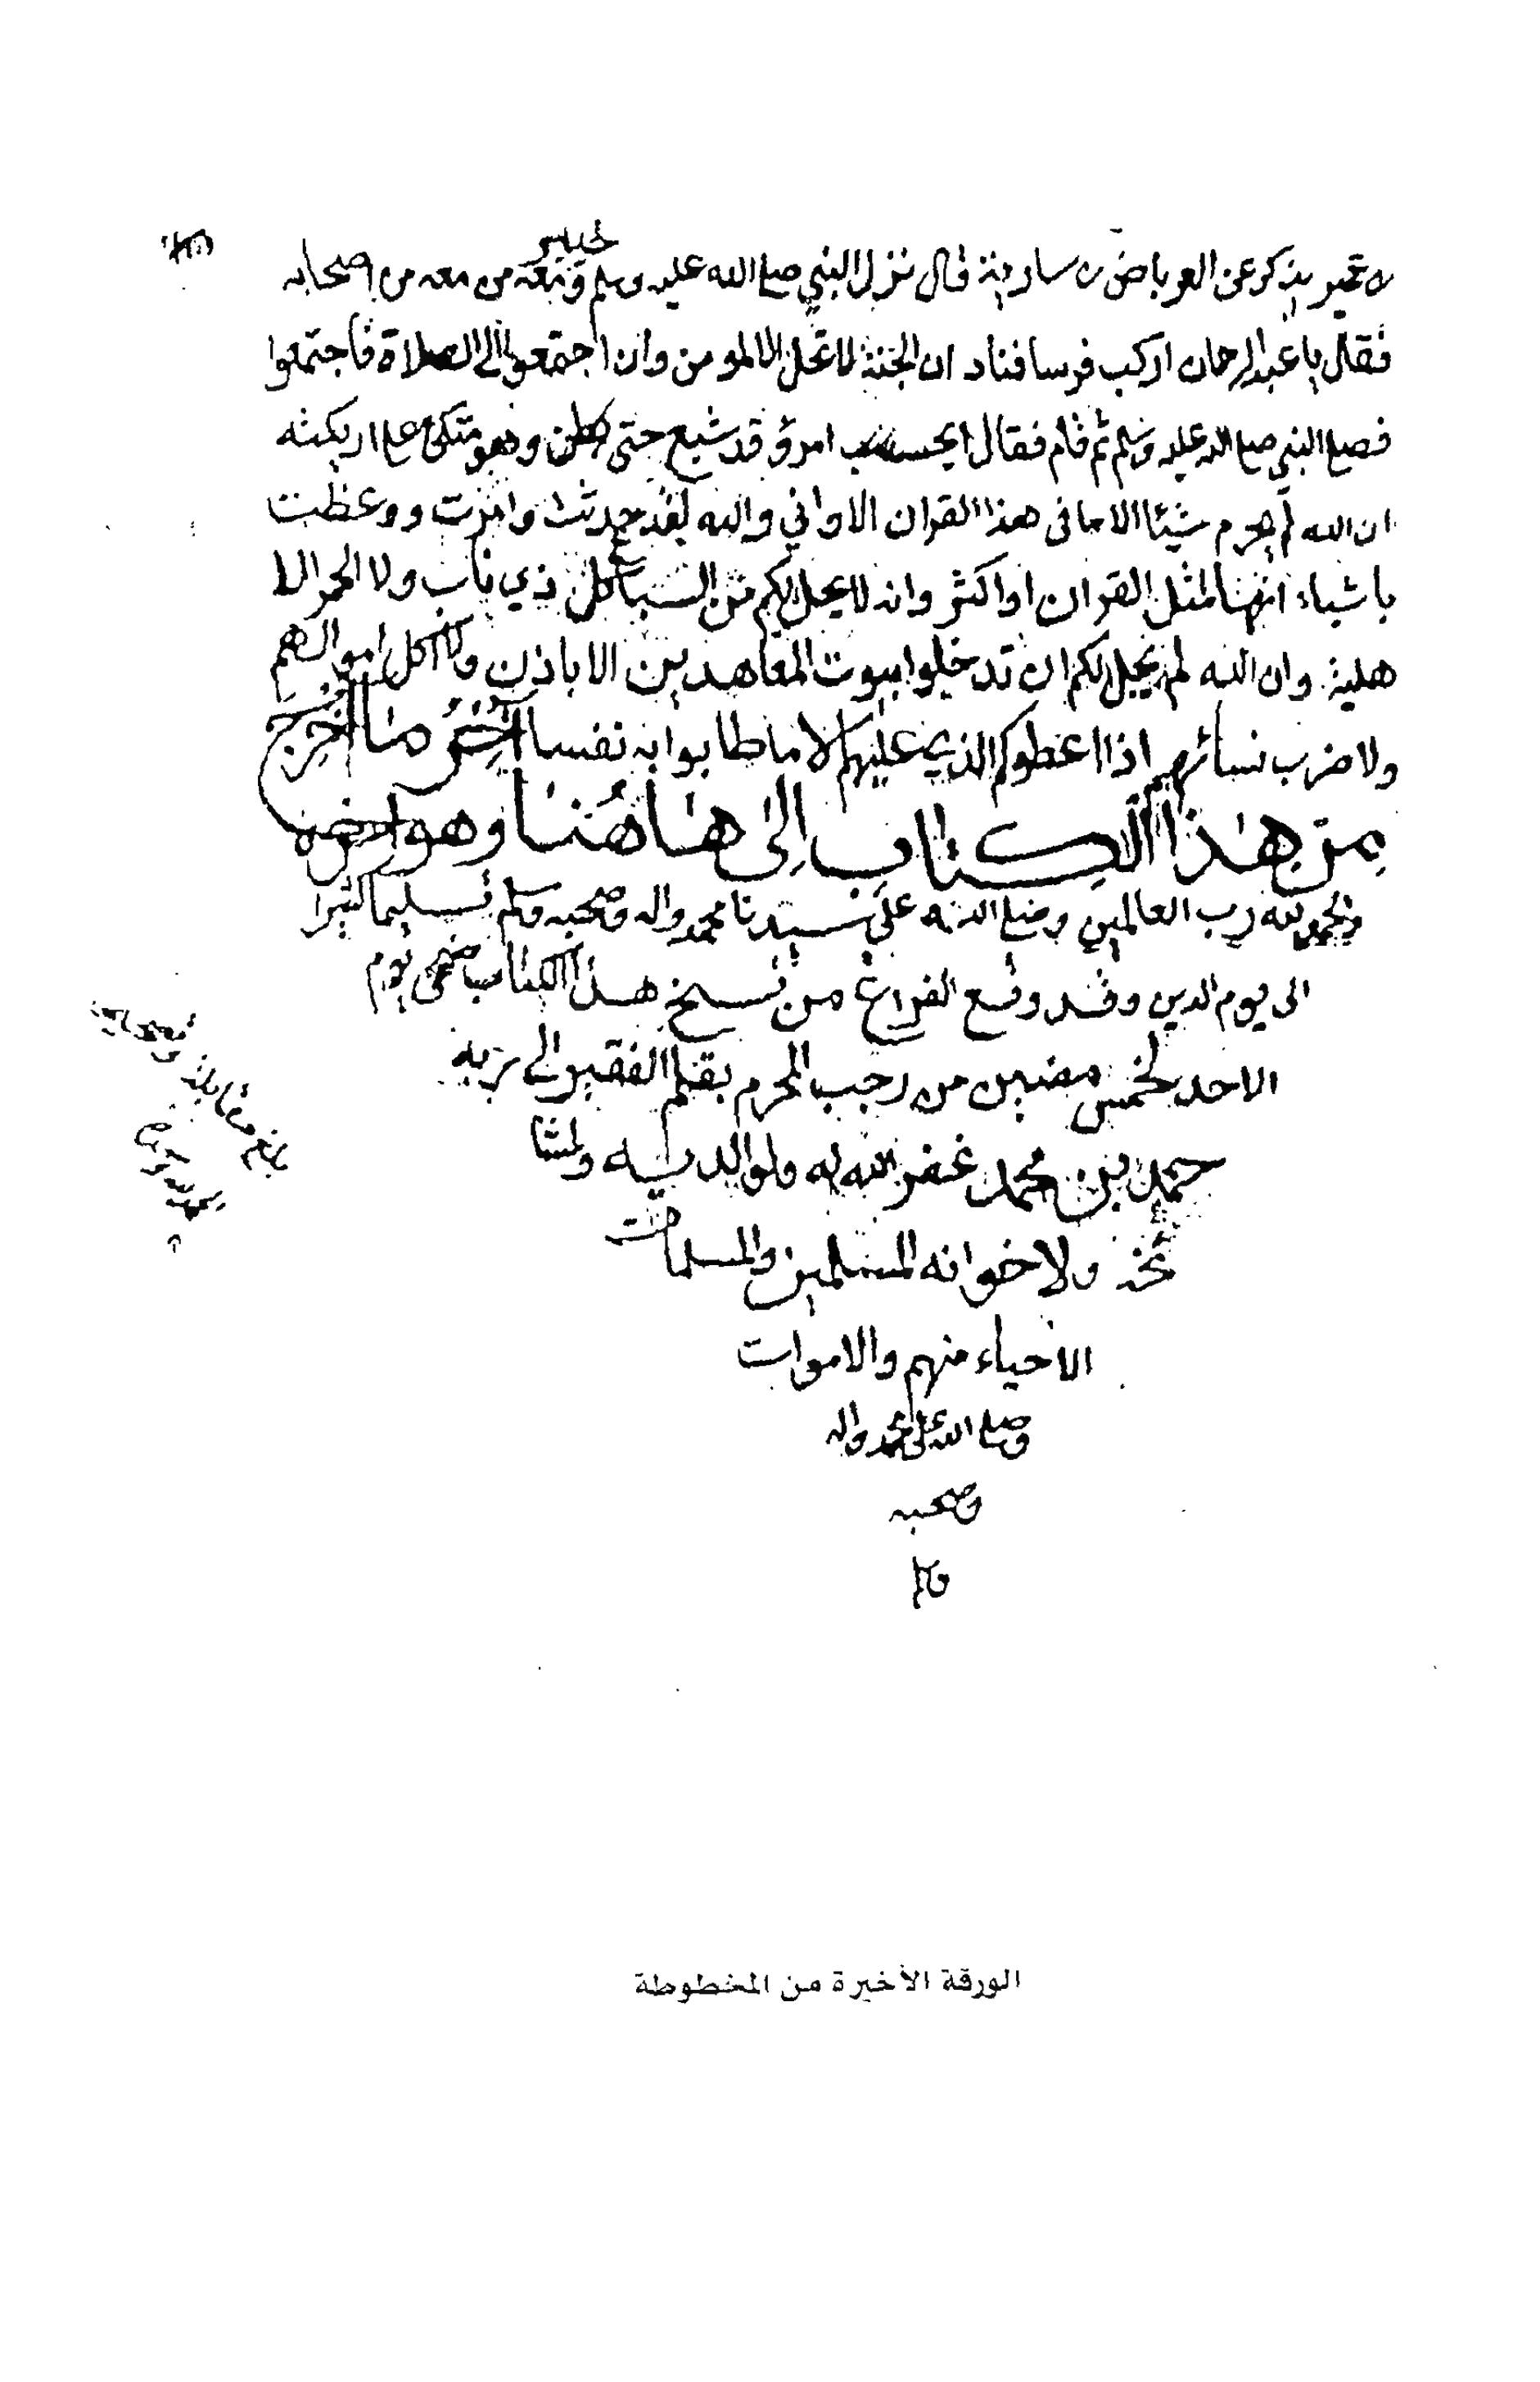 بن عمير يذكر عن العرباض بن سارية قال نزل النبي صلى الله عليه وسلم خيبر ومعه من معه من اصحابه
فقال يا عبد الرحمان اركب فرسا فناد ان الجنة لا تحل الا لمومن وان اجتمعوا الى الصلاة فاجتمعوا
فصلى النبي صلى الله عليه وسلم ثم قام فقال ايحسب امرؤ قد شبع حتى بطن وهو متكئ على اريكته
ان الله لم يحرم شيئا الا ما في هذا القران الا واني والله لقد حدثت وامرت ووعظت
باشياء انها لمثل القران او اكثر وانه لا يحل لكم من السباع كل ذي ناب ولا الحمر الا
هلية وان الله لم يحل لكم ان تدخلوا بيوت المعاهدين الا باذن ولا اكل اموالهم
ولا ضرب نسائهم اذا اعطوكم الذي عليهم الا ما طابوا به نفسا آخِرُ ما اُخْرِجَ
مِن هٰذا الكِتابِ اِلىٰ هاهُنا وهو اخره
والحمد لله رب العالمين وصلى الله على سيدنا محمد واله وصحبه وسلم تسليما كثيرا
الى يوم الدين وقد وقع الفراغ من نسخ هذا الكتاب ضحى يوم
الاحد لخمس مضين من رجب المحرم بقلم الفقير الى ربه
حمد بن محمد غفر الله له ولوالديه ولمشا
ئخه ولاخوانه المسلمين والمسلمات
الاحياء منهم والاموات
وصلى الله على محمد واله
وصحبه
وسلم
الورقة الأخيرة من المخطوطة